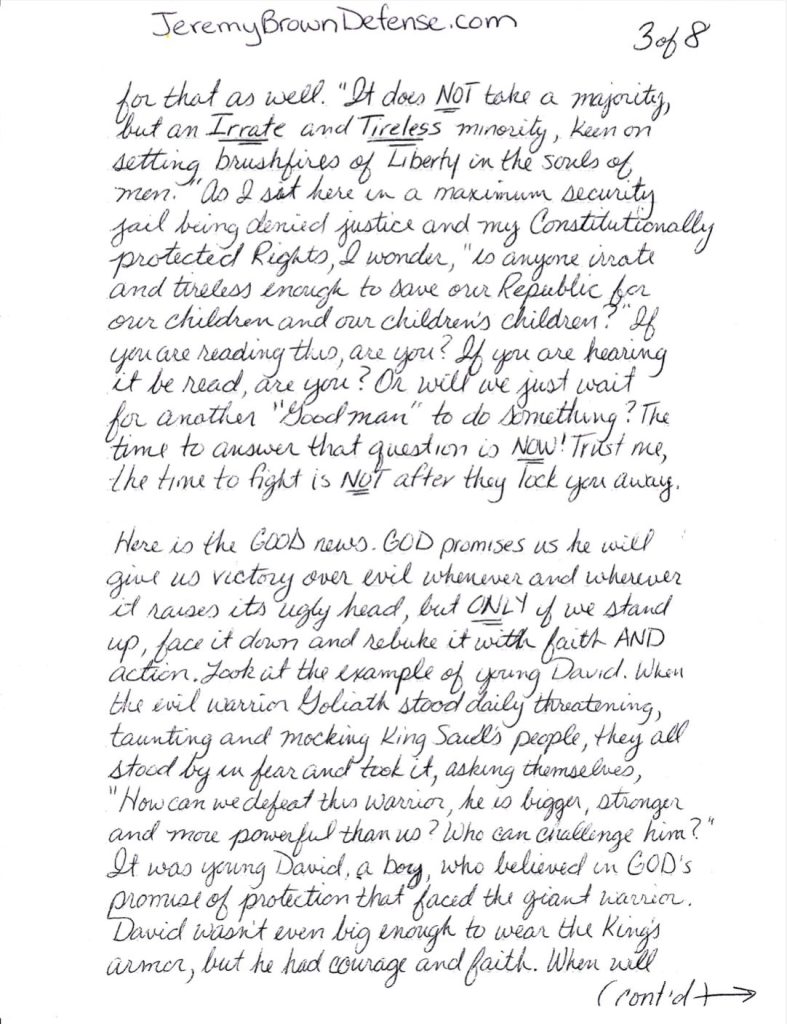 JeremyBrownDefense.com
3 of 8
for that as well. "It does NOT take a majority,
but an Irrate and Tireless minority, keen on
setting brushfires of Liberty in the souls of
men." As I sit here in a maximum security
jail being denied justice and my Constitutionally
protected Rights, I wonder, "is anyone irrate
and tireless enough to save our Republic for
our children and our children's children?" If
you are reading this, are you? If you are hearing
it be read, are you? Or will we just wait
for another "Good man" to do something? The
time to answer that question is NOW! Trust me,
the time to fight is NOT after they lock you away.
Here is the GOOD news. GOD promises us he will
give us victory over evil whenever and wherever
it raises its ugly head, but ONLY if we stand
up, face it down and rebuke it with faith AND
action. Look at the example of young David. When
the evil warrior Goliath stood daily threatening,
taunting and mocking King Saul's people, they all
stood by in fear and took it, asking themselves,
"How can we defeat this warrior, he is bigger, stronger
and more powerful than us? Who can challenge him?"
It was young David, a boy, who believed in GOD's
promise of protection that faced the giant warrior.
David wasn't even big enough to wear the King's
armor, but he had courage and faith. When will
(cont'd →